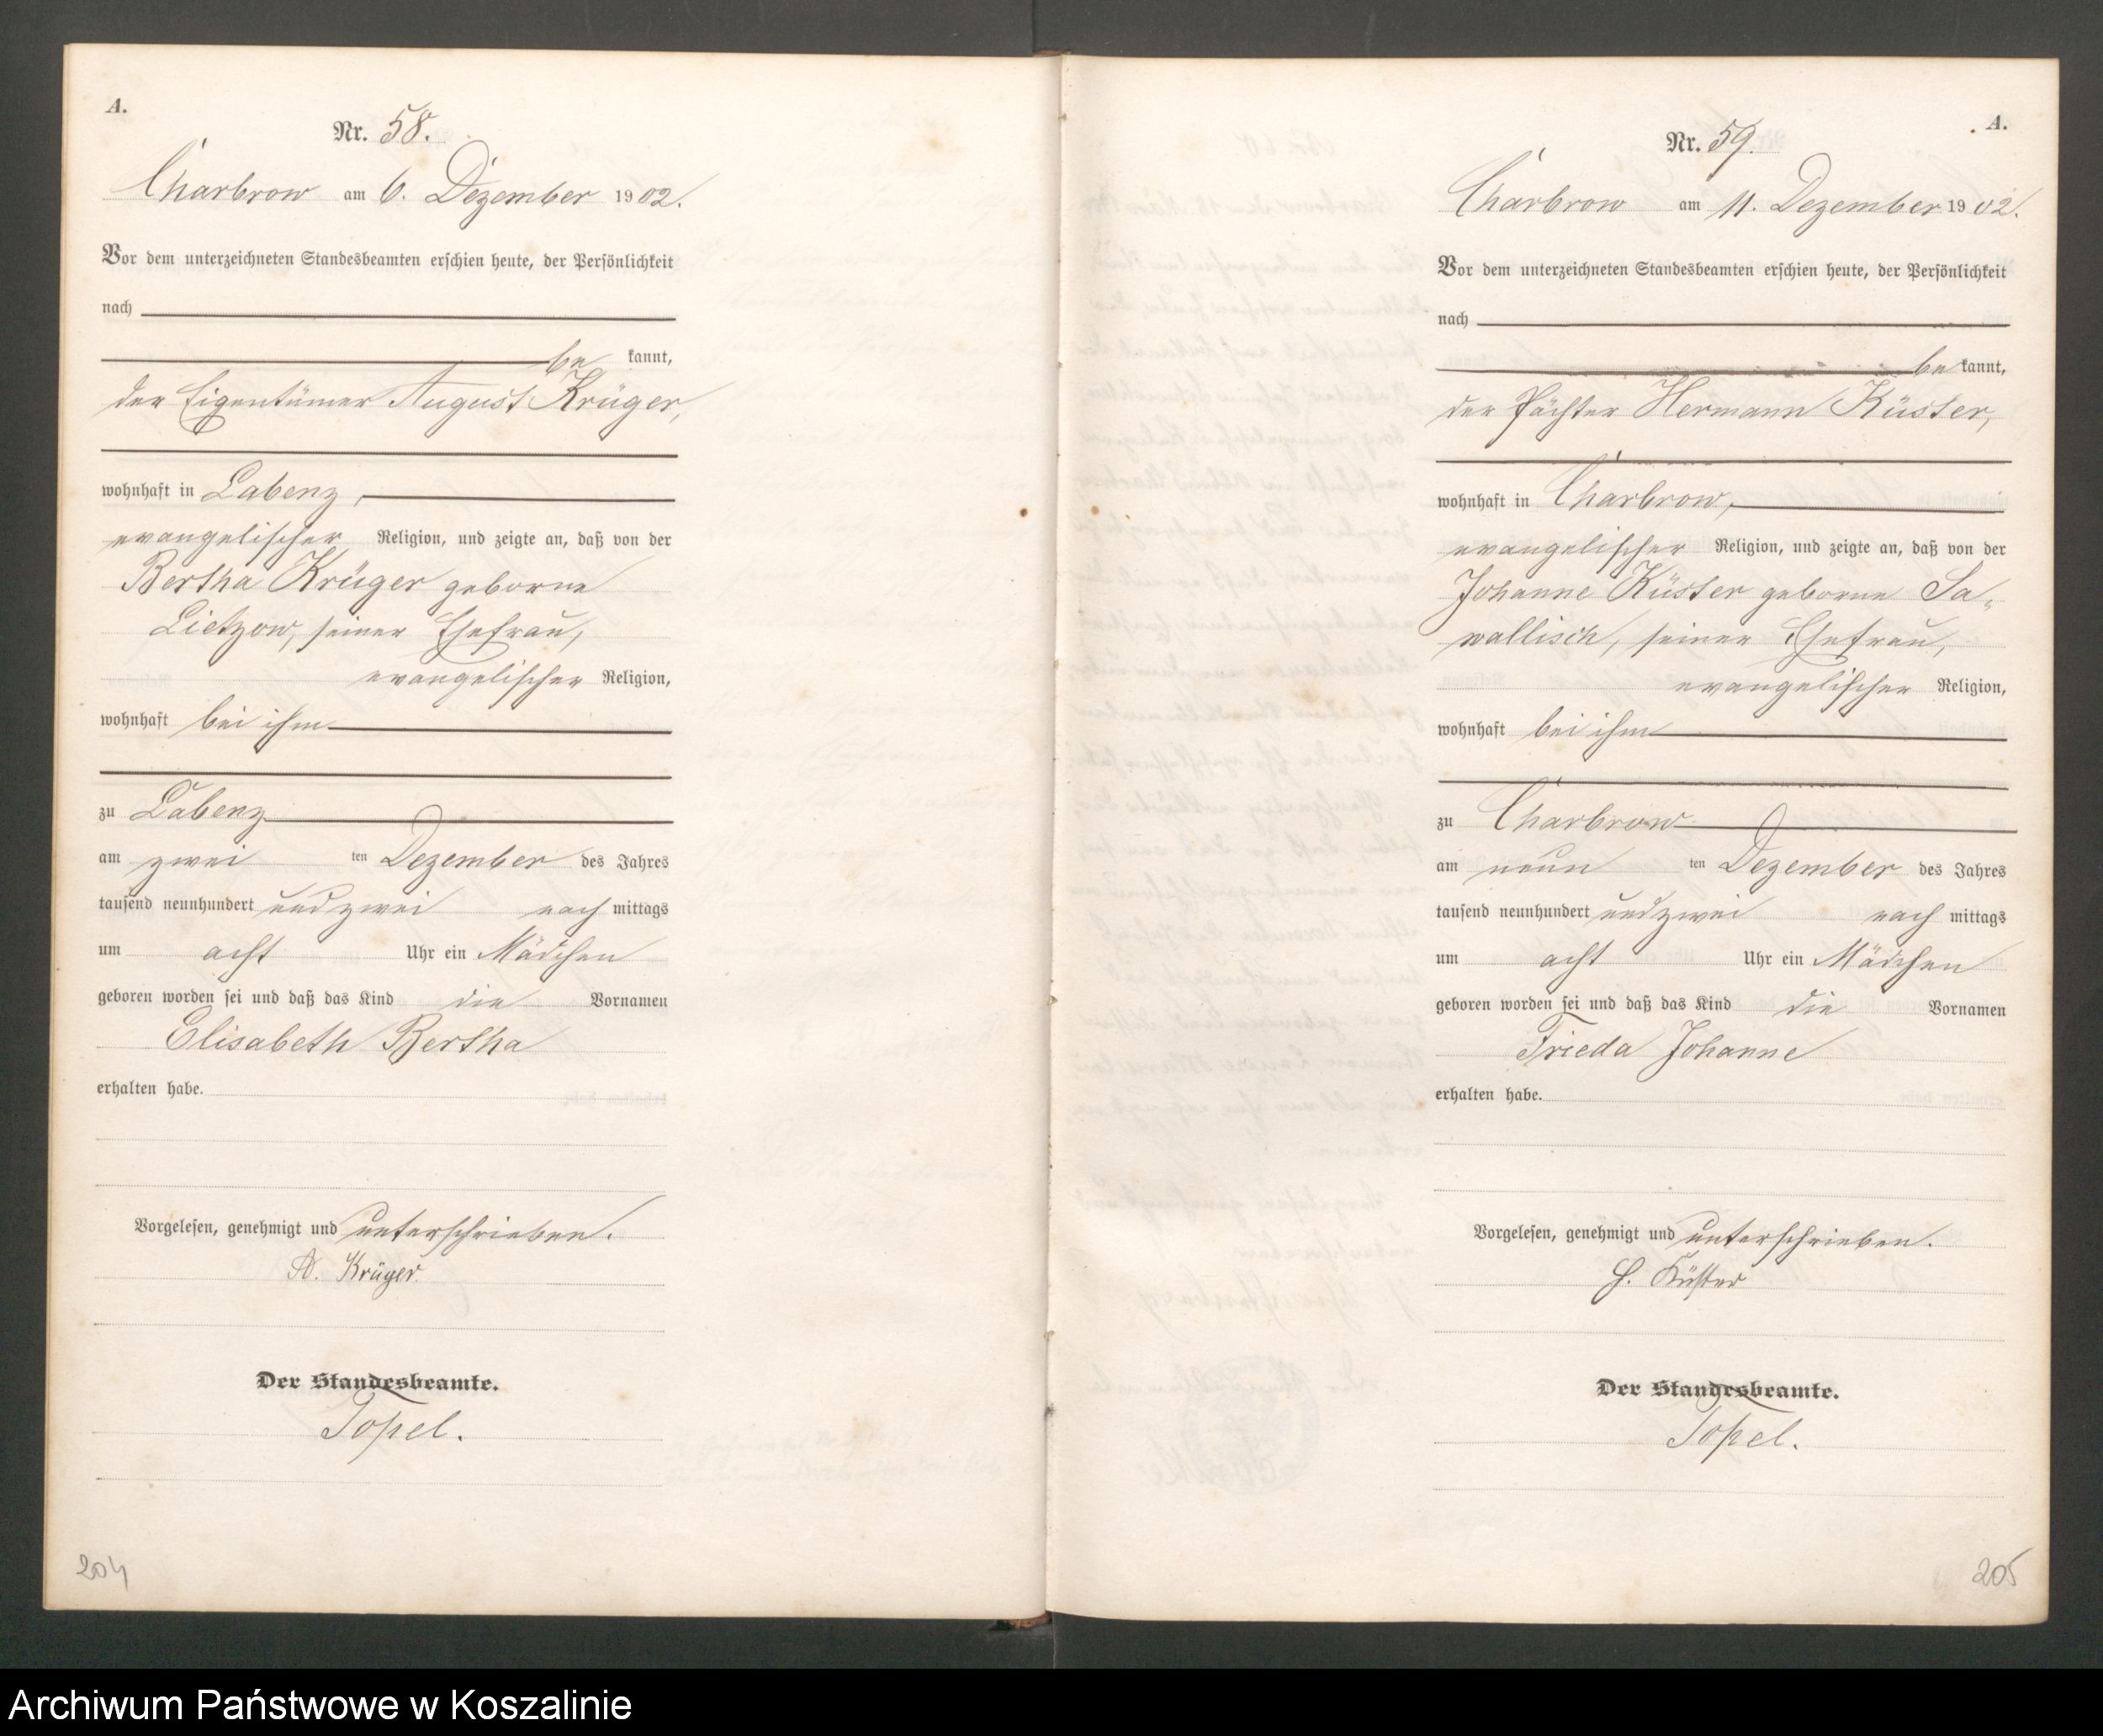 A.
Nr. 58.
Charbrow am 6. Dezember 1902.
Vor dem unterzeichneten Standesbeamten erschien heute, der Persönlichkeit
nach
be kannt,
der Eigentümer August Krüger,
wohnhaft in Labenz,
evangelischer Religion, und zeigte an, daß von der
Bertha Krüger geborne
Lietzow, seiner Ehefrau,
evangelischer Religion,
wohnhaft bei ihm
zu Labenz
am zwei ten Dezember des Jahres
tausend neunhundert und zwei nach mittags
um acht Uhr ein Mädchen
geboren worden sei und daß das Kind die Vornamen
Elisabeth Bertha
erhalten habe.
Vorgelesen, genehmigt und unterschrieben.
A. Krüger
Der Standesbeamte.
Topel.
204
A.
Nr. 59.
Charbrow am 11. Dezember 1902.
Vor dem unterzeichneten Standesbeamten erschien heute, der Persönlichkeit
nach
be kannt,
der Pächter Hermann Küster,
wohnhaft in Charbrow,
evangelischer Religion, und zeigte an, daß von der
Johanne Küster geborne Sa-
wallisch, seiner Ehefrau,
evangelischer Religion,
wohnhaft bei ihm
zu Charbrow
am neun ten Dezember des Jahres
tausend neunhundert und zwei nach mittags
um acht Uhr ein Mädchen
geboren worden sei und daß das Kind die Vornamen
Frieda Johanne
erhalten habe.
Vorgelesen, genehmigt und unterschrieben.
H. Küster
Der Standesbeamte.
Topel.
205
Archiwum Państwowe w Koszalinie